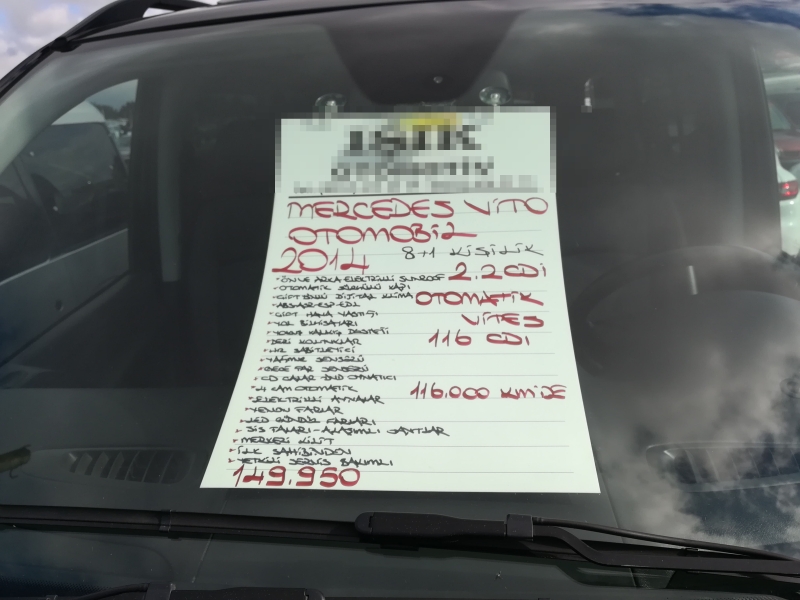 MERCEDES VİTO
OTOMOBİL
2014 8+1 KİŞİLİK
2.2 CDİ
- ÖN VE ARKA ELEKTRİKLİ SUNROOF
- OTOMATİK SÜRGÜLÜ KAPI
- ÇİFT BÖLGELİ DİJİTAL KLİMA OTOMATİK
- ABS-ASR-ESP-EDL
- ÇİFT HAVA YASTIĞI VİTES
- YOL BİLGİSAYARI
- YOKUŞ KALKIŞ DESTEĞİ 116 CDI
- DERİ KOLTUKLAR
- HIZ SABİTLEYİCİ
- YAĞMUR SENSÖRÜ
- GECE FAR SENSÖRÜ
- CD ÇALAR - DVD OYNATICI
- 4 CAM OTOMATİK 116.000 KM'DE
- ELEKTRİKLİ AYNALAR
- XENON FARLAR
- LED GÜNDÜZ FARLARI
- SİS FARLARI - ALAŞIMLI JANTLAR
- MERKEZİ KİLİT
- İLK SAHİBİNDEN
- YETKİLİ SERVİS BAKIMLI
149.950